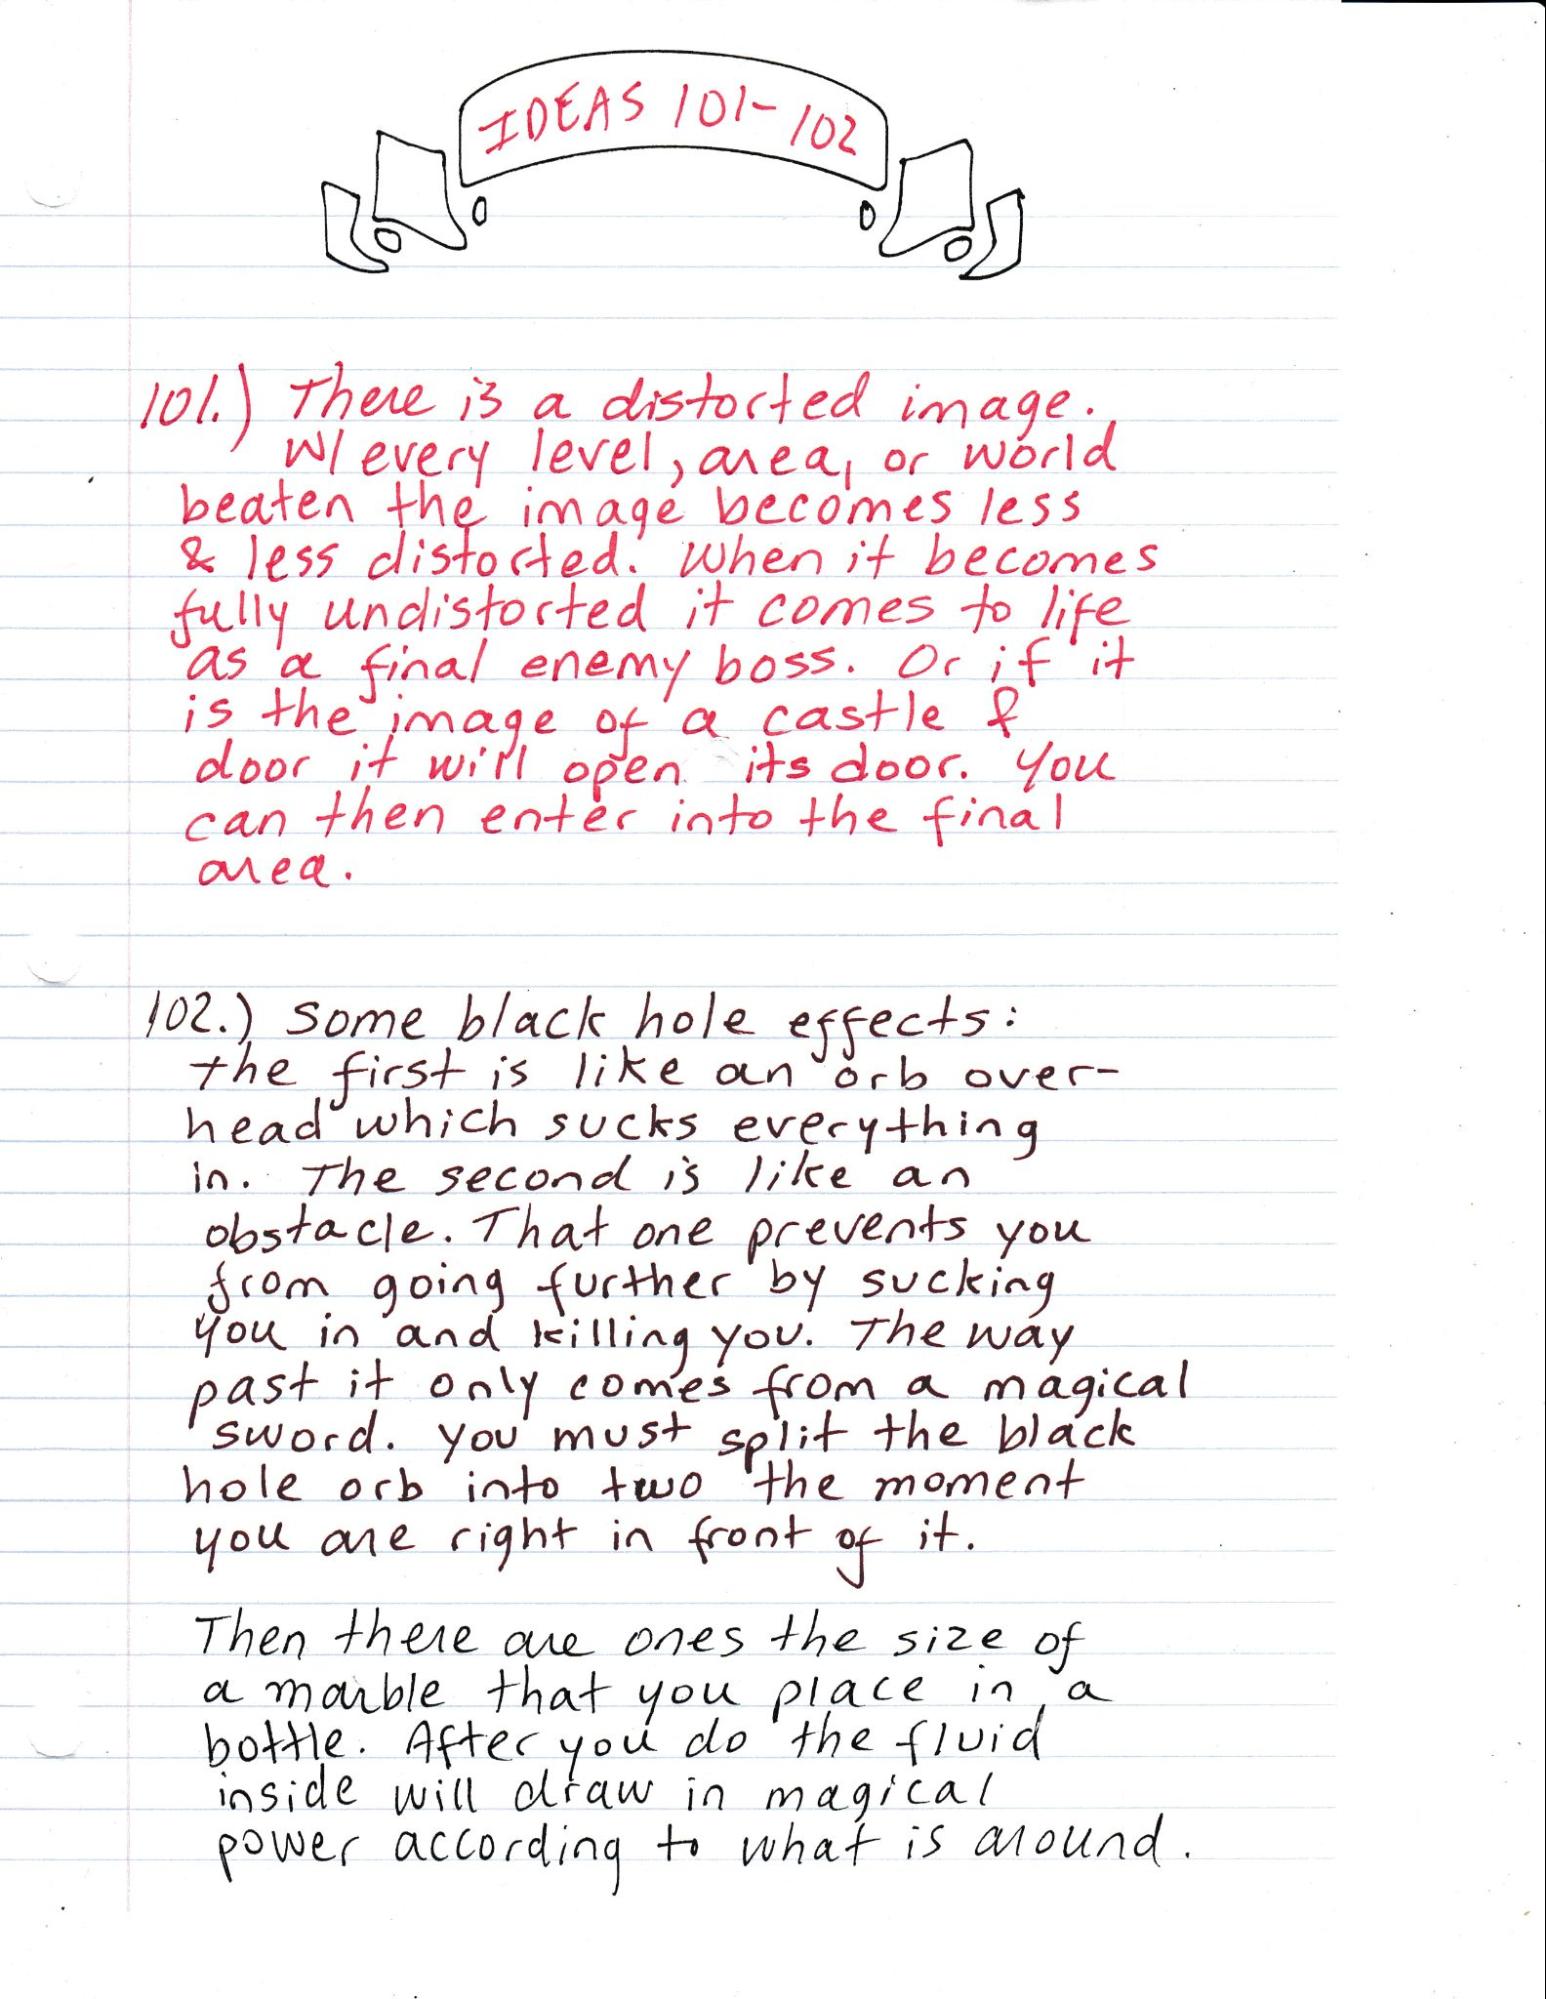 IDEAS 101-102
101.) There is a distorted image.
W/ every level, area, or world
beaten the image becomes less
& less distorted. When it becomes
fully undistorted it comes to life
as a final enemy boss. Or if it
is the image of a castle &
door it will open its door. You
can then enter into the final
area.
102.) Some black hole effects:
the first is like an orb over-
head which sucks everything
in. The second is like an
obstacle. That one prevents you
from going further by sucking
you in and killing you. The way
past it only comes from a magical
sword. You must split the black
hole orb into two the moment
you are right in front of it.
Then there are ones the size of
a marble that you place in a
bottle. After you do the fluid
inside will draw in magical
power according to what is around.